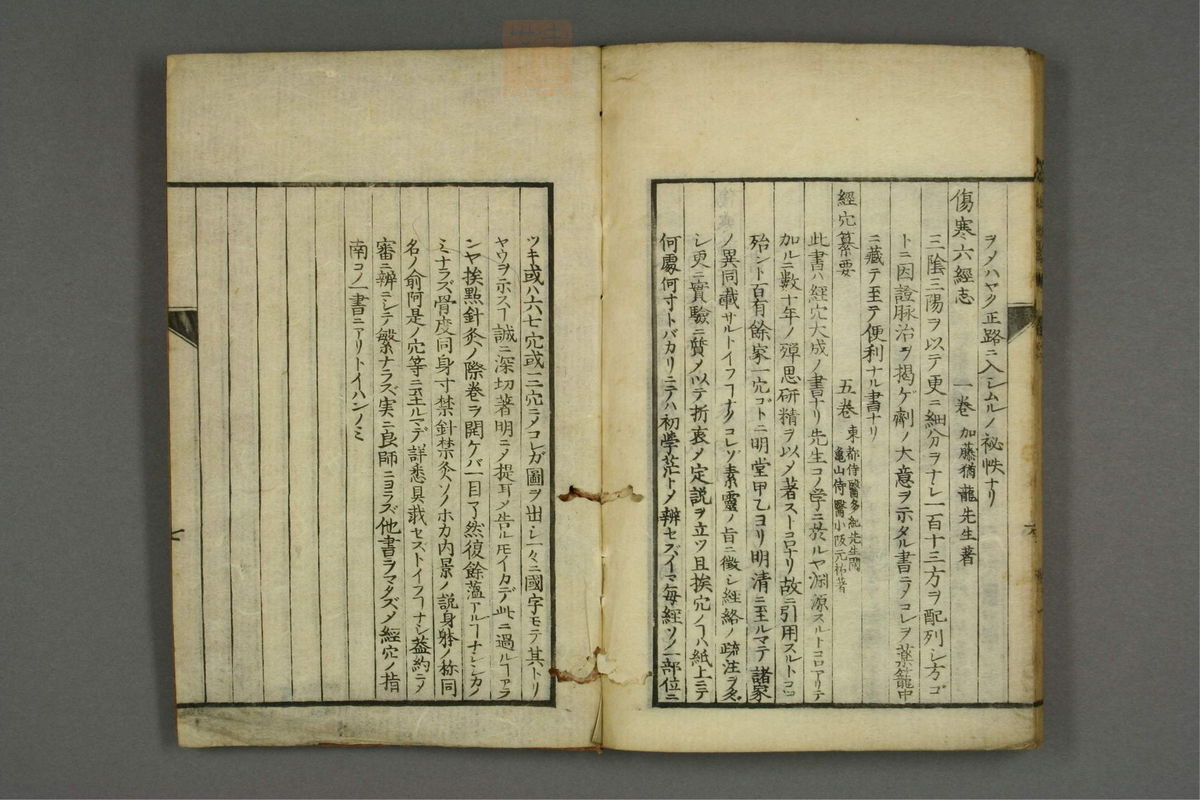 ヲメハヤク正路ニ入シムルノ祕帙ナリ
傷寒六經志 一卷 加藤猶龍先生著
三陰三陽ヲ以テ更ニ細分ヲナシ一百十三方ヲ配列シ方ゴ
トニ因證脉治ヲ揭ゲ劑ノ大意ヲ示タル書ニメコレヲ藥籠中
ニ藏テ至テ便利ナル書ナリ
經穴纂要 五卷 東都侍醫多紀先生閱
龜山侍醫小阪元祐著
此書ハ經穴大成ノ書ナリ先生コノ学ニ於ルヤ淵源スルトコロアリテ
加ルニ数十年ノ殫思研精ヲ以メ著ストコロナリ故ニ引用スルトコロ
殆ント百有餘家一穴ゴトニ明堂甲乙ヨリ明清ニ至ルマテ諸家
ノ異同載サルトイフヿナクコレヲ素靈ノ旨ニ徵シ經絡ノ疏注ヲ
シ更ニ實驗ニ質メ以テ折衷メ定説ヲ立ツ且挨穴ノヿハ紙上ニテ
何處何寸トバカリニテハ初學茫トメ辨セズイマ每經ソノ一部位ニ
ツキ或ハ六七穴或二三穴ヲノコレガ圖ヲ出シ一々ニ國字モテ其トリ
ヤウヲ示スヿ誠ニ深切著明ニメ提耳メ告ルモイカデ此ニ過ルヿアラ
ンヤ挨點針灸ノ際卷ヲ開ケバ一目了然復餘薀アルヿナシシカノ
ミナラズ骨度同身寸禁針禁灸ソノホカ内景ノ説身躰ノ称同
名ノ俞阿是ノ穴等ニ至ルマデ詳悉具載セストイフヿナシ蓋約ニメ
審ニ辨ニシテ繁ナラズ実ニ良師ニヨラズ他書ヲマタズメ經穴ノ指
南コノ一書ニアリトイハンノミ
七